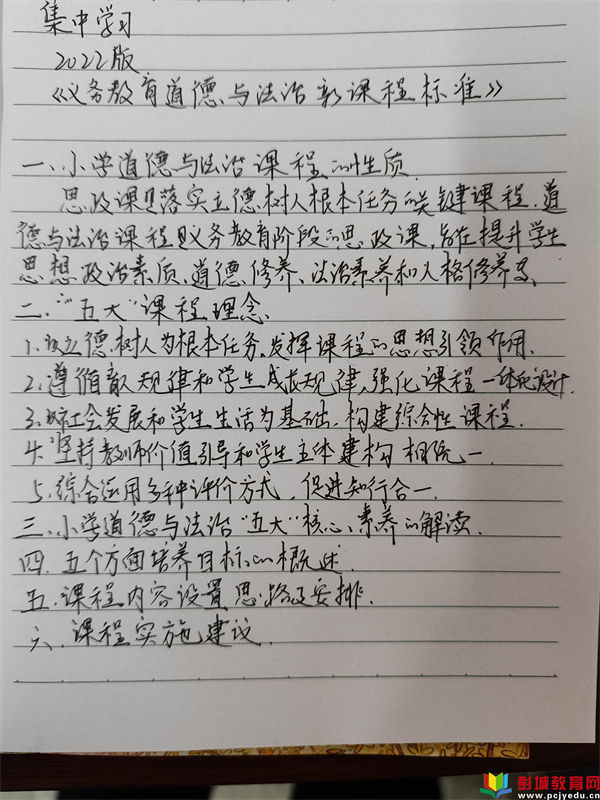 集中学习
2022版
《义务教育道德与法治新课程标准》
一、小学道德与法治课程的性质.
思政课是落实立德树人根本任务的关键课程,道
德与法治课程是义务教育阶段的思政课,旨在提升学生
思想政治素质、道德修养、法治素养和人格修养等、
二、“五大”课程理念、
1.以立德树人为根本任务,发挥课程的思想引领作用.
2.遵循育人规律和学生成长规律,强化课程一体化设计
3.以社会发展和学生生活为基础,构建综合性课程.
4.坚持教师价值引导和学生主体建构相统一.
5.综合运用多种评价方式,促进知行合一.
三、小学道德与法治“五大”核心素养的解读.
四.五个方面培养目标的概述.
五.课程内容设置思路及安排.
六、课程实施建议.
彭城教育网
www.pcjyedu.cn